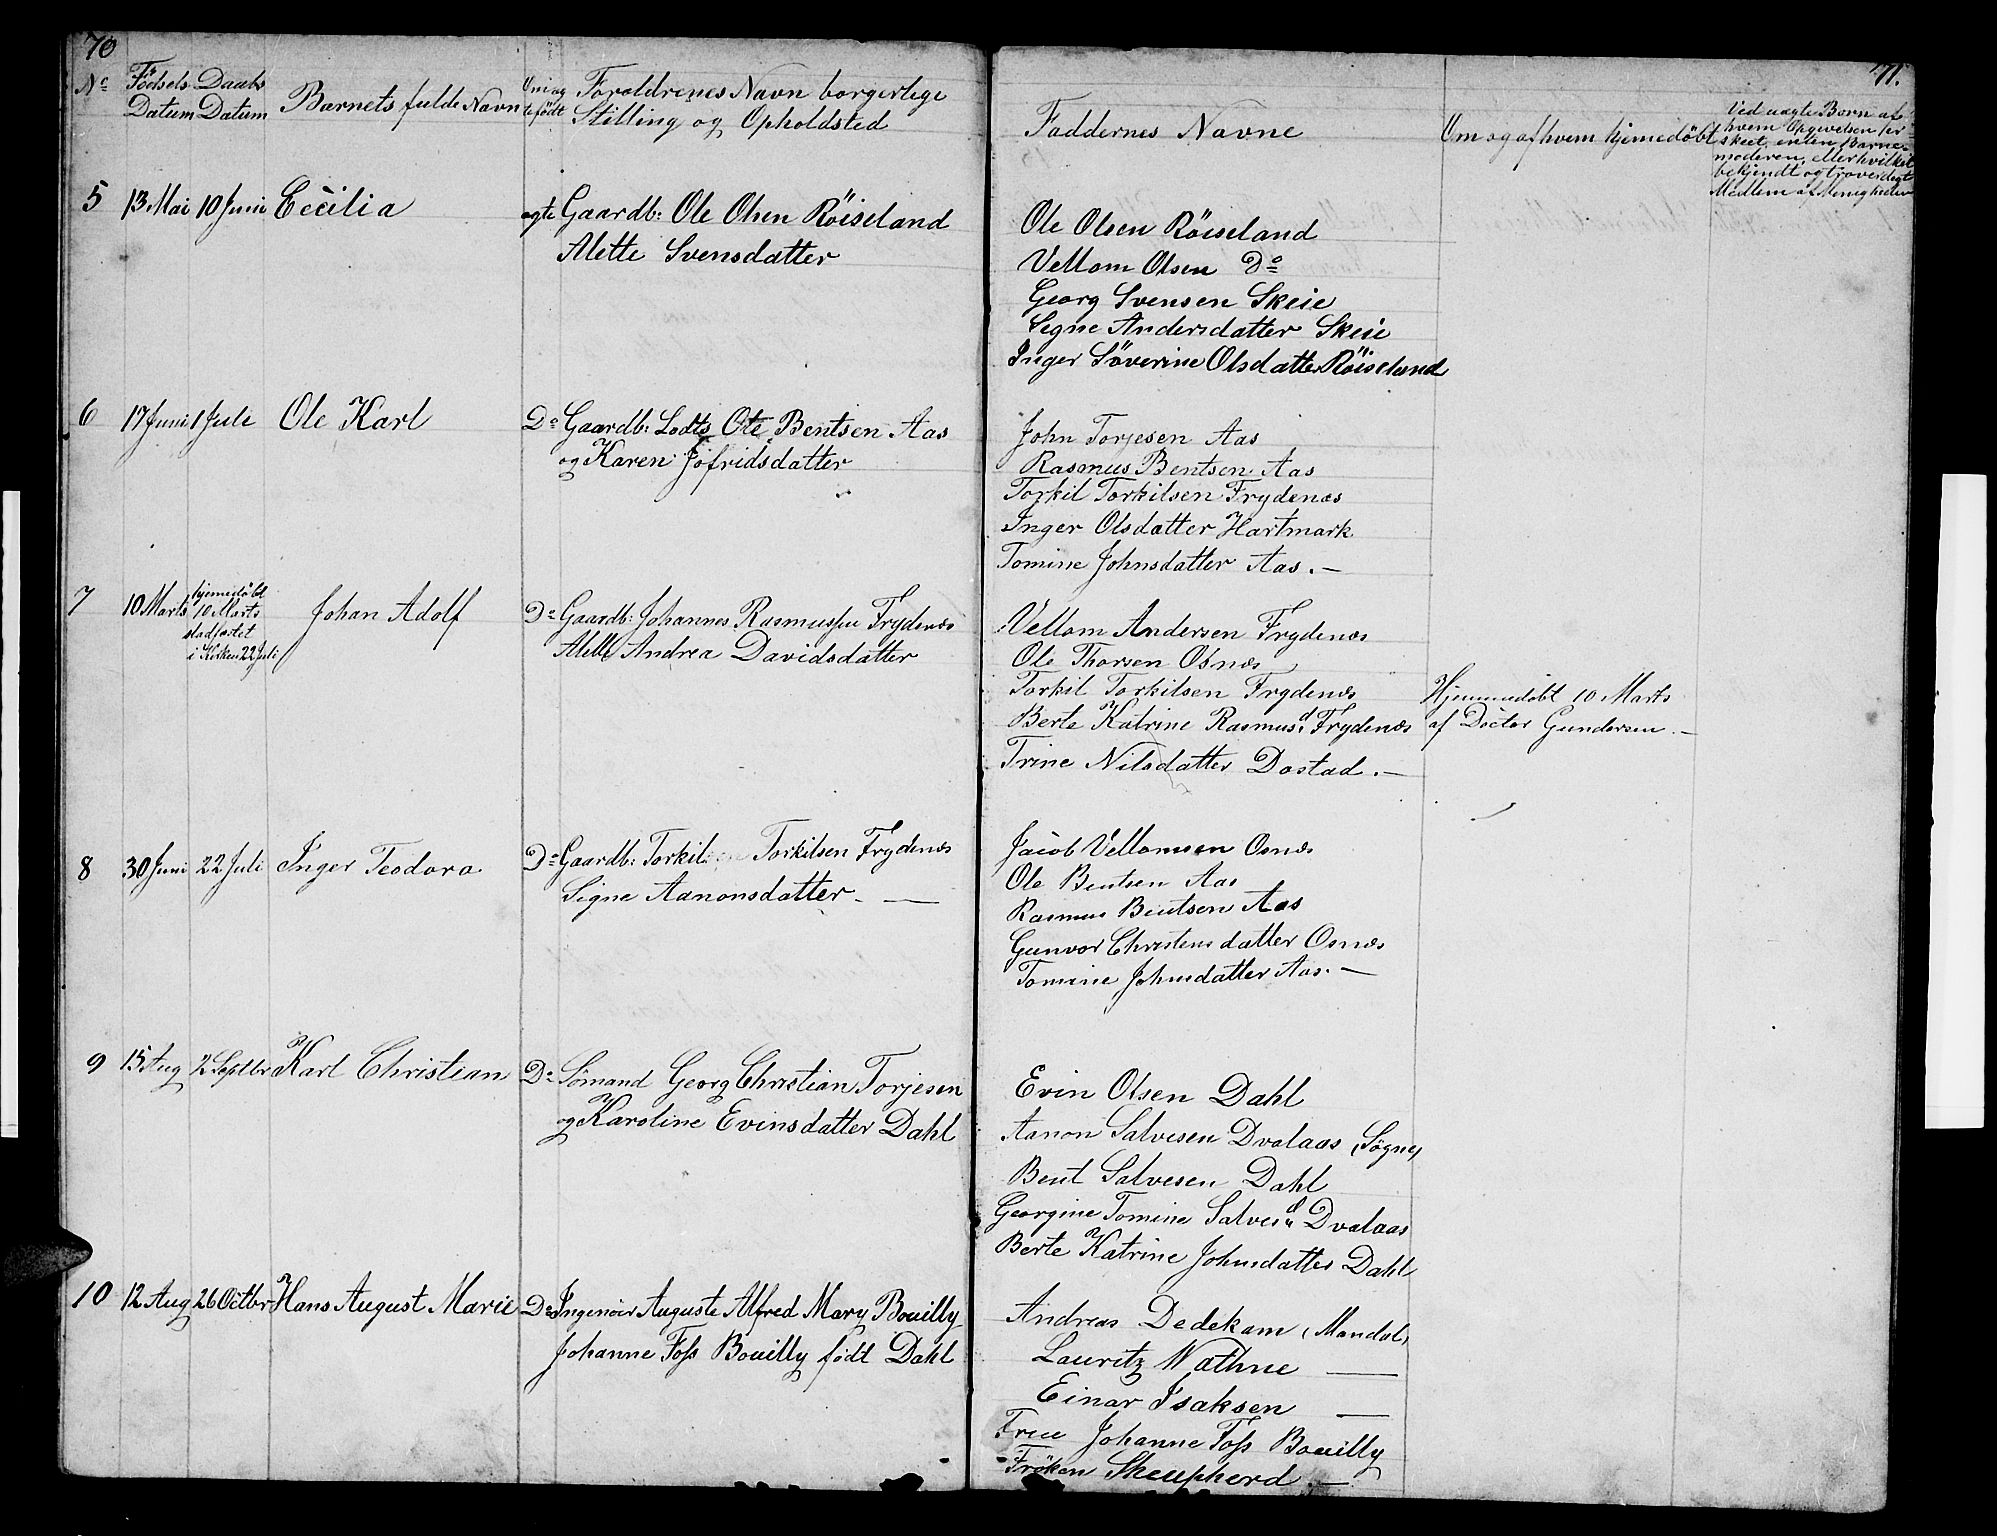 70
71.
No Födsels Datum Daabs Datum Barnets fulde Navn Om ægtefödt Foroldrenes Navn borgerlige
Stilling og Opholdsted
Faddernes Navne
Om og af hvem hjemedöbt
Ved uægte Born af
hvem Opgivelsen er
skeet, enten Barne-
moderen, eller hvilket
bekjendt og troverdigt
Medlem af Menigheden
5 13 Mai 10 Juni Cecilia ægte Gaardb: Ole Olsen Röiseland
Alette Svensdatter
Ole Olsen Röiseland
Vellom Olsen Do
Georg Svensen Skeie
Segne Andersdatter Skeie
Inger Söverine Olsdatter Röiseland
6 17 Juni 1 Juli Ole Karl Do Gaardb: Lodts Ole Bentsen Aas
og Karen Jofridsdatter
John Torjesen Aas
Rasmus Bentsen Aas
Torkil Torkilsen Frydenæs
Inger Olsdatter Hartmark
Tomine Johnsdatter Aas. —
7 10 Marts hjemedöbt
10 Marts
stadfæstet
i Kirken 22 Juli
Johan Adolf Do Gaardb: Johannes Rasmussen Frydenæs
Alette Andrea Davidsdatter
Vellom Andersen Frydenæs
Ole Thorsen Osnæs
Torkil Torkilsen Frydenæs
Berte Katrine Rasmusd. Frydenæs
Trine Nilsdatter Dostad. —
Hjemmedöbt 10 Marts
af Doctor Gundersen. —
8 30 Juni 22 Juli Inger Teodora Do Gaardb: Torkil Torkilsen Frydenæs
Signe Aanonsdatter. —
Jacob Vellomsen Osnæs
Ole Bentsen Aas
Rasmus Bentsen Aas
Gunvor Christensdatter Osnæs
Tomine Johnsdatter Aas. —
9 15 Aug 2 Septbr Karl Christian Do Sömand Georg Christian Torjesen
og Karoline Evinsdatter Dahl
Evin Olsen Dahl
Aanon Salvesen Dvalaas (Sögne)
Bent Salvesen Dahl
Georgine Tomine Salvesd. Dvalaas
Berte Katrine Johnsdatter Dahl
10 12 Aug 26 Octbr Hans August Marie Do Ingeniör Auguste Alfred Mary Bouilly
Johanne Foss Bouilly födt Dahl
Andreas Dedekam (Mandal)
Lauritz Wathne —
Einar Isaksen —
Frue Johanne Foss Bouilly
Fröken Sheupherd. —